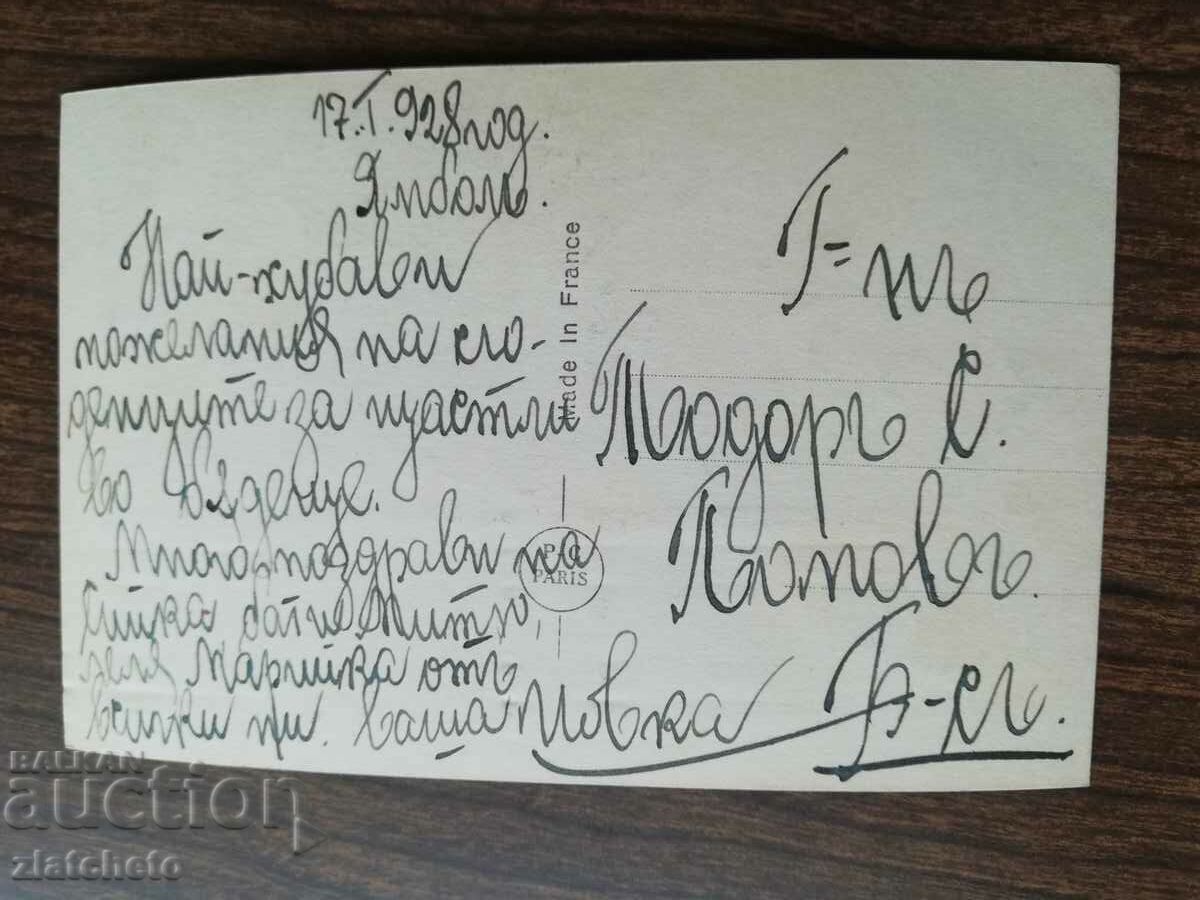 17.I.928 год.
Ямболъ.
Най-хубави
пожелания на сго-
денците за щастли
во бѫдеще.
Много поздрави на
батю Митю,
леля Марийка отъ
всички ни. Ваша Йовка
Made In France
P.C
PARIS
Г=нъ
Тодоръ С.
Поповъ.
Б-съ.
BALKAN
auction
zlatcheto